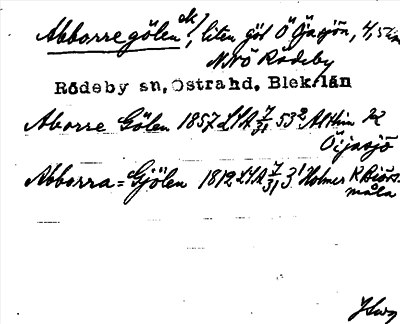 Abborregölen ck!, liten göl Ö Öjasjön, 4,5 km
NNÖ Rödeby
Rödeby sn, Östra hd, Blek. län
Aborre Gölen 1857 LSA 7/31 53² Allm k
Öijasjö
Abborra=Gjölen 1812 LSA 7/31 3¹ Holmer R Björs-
måla